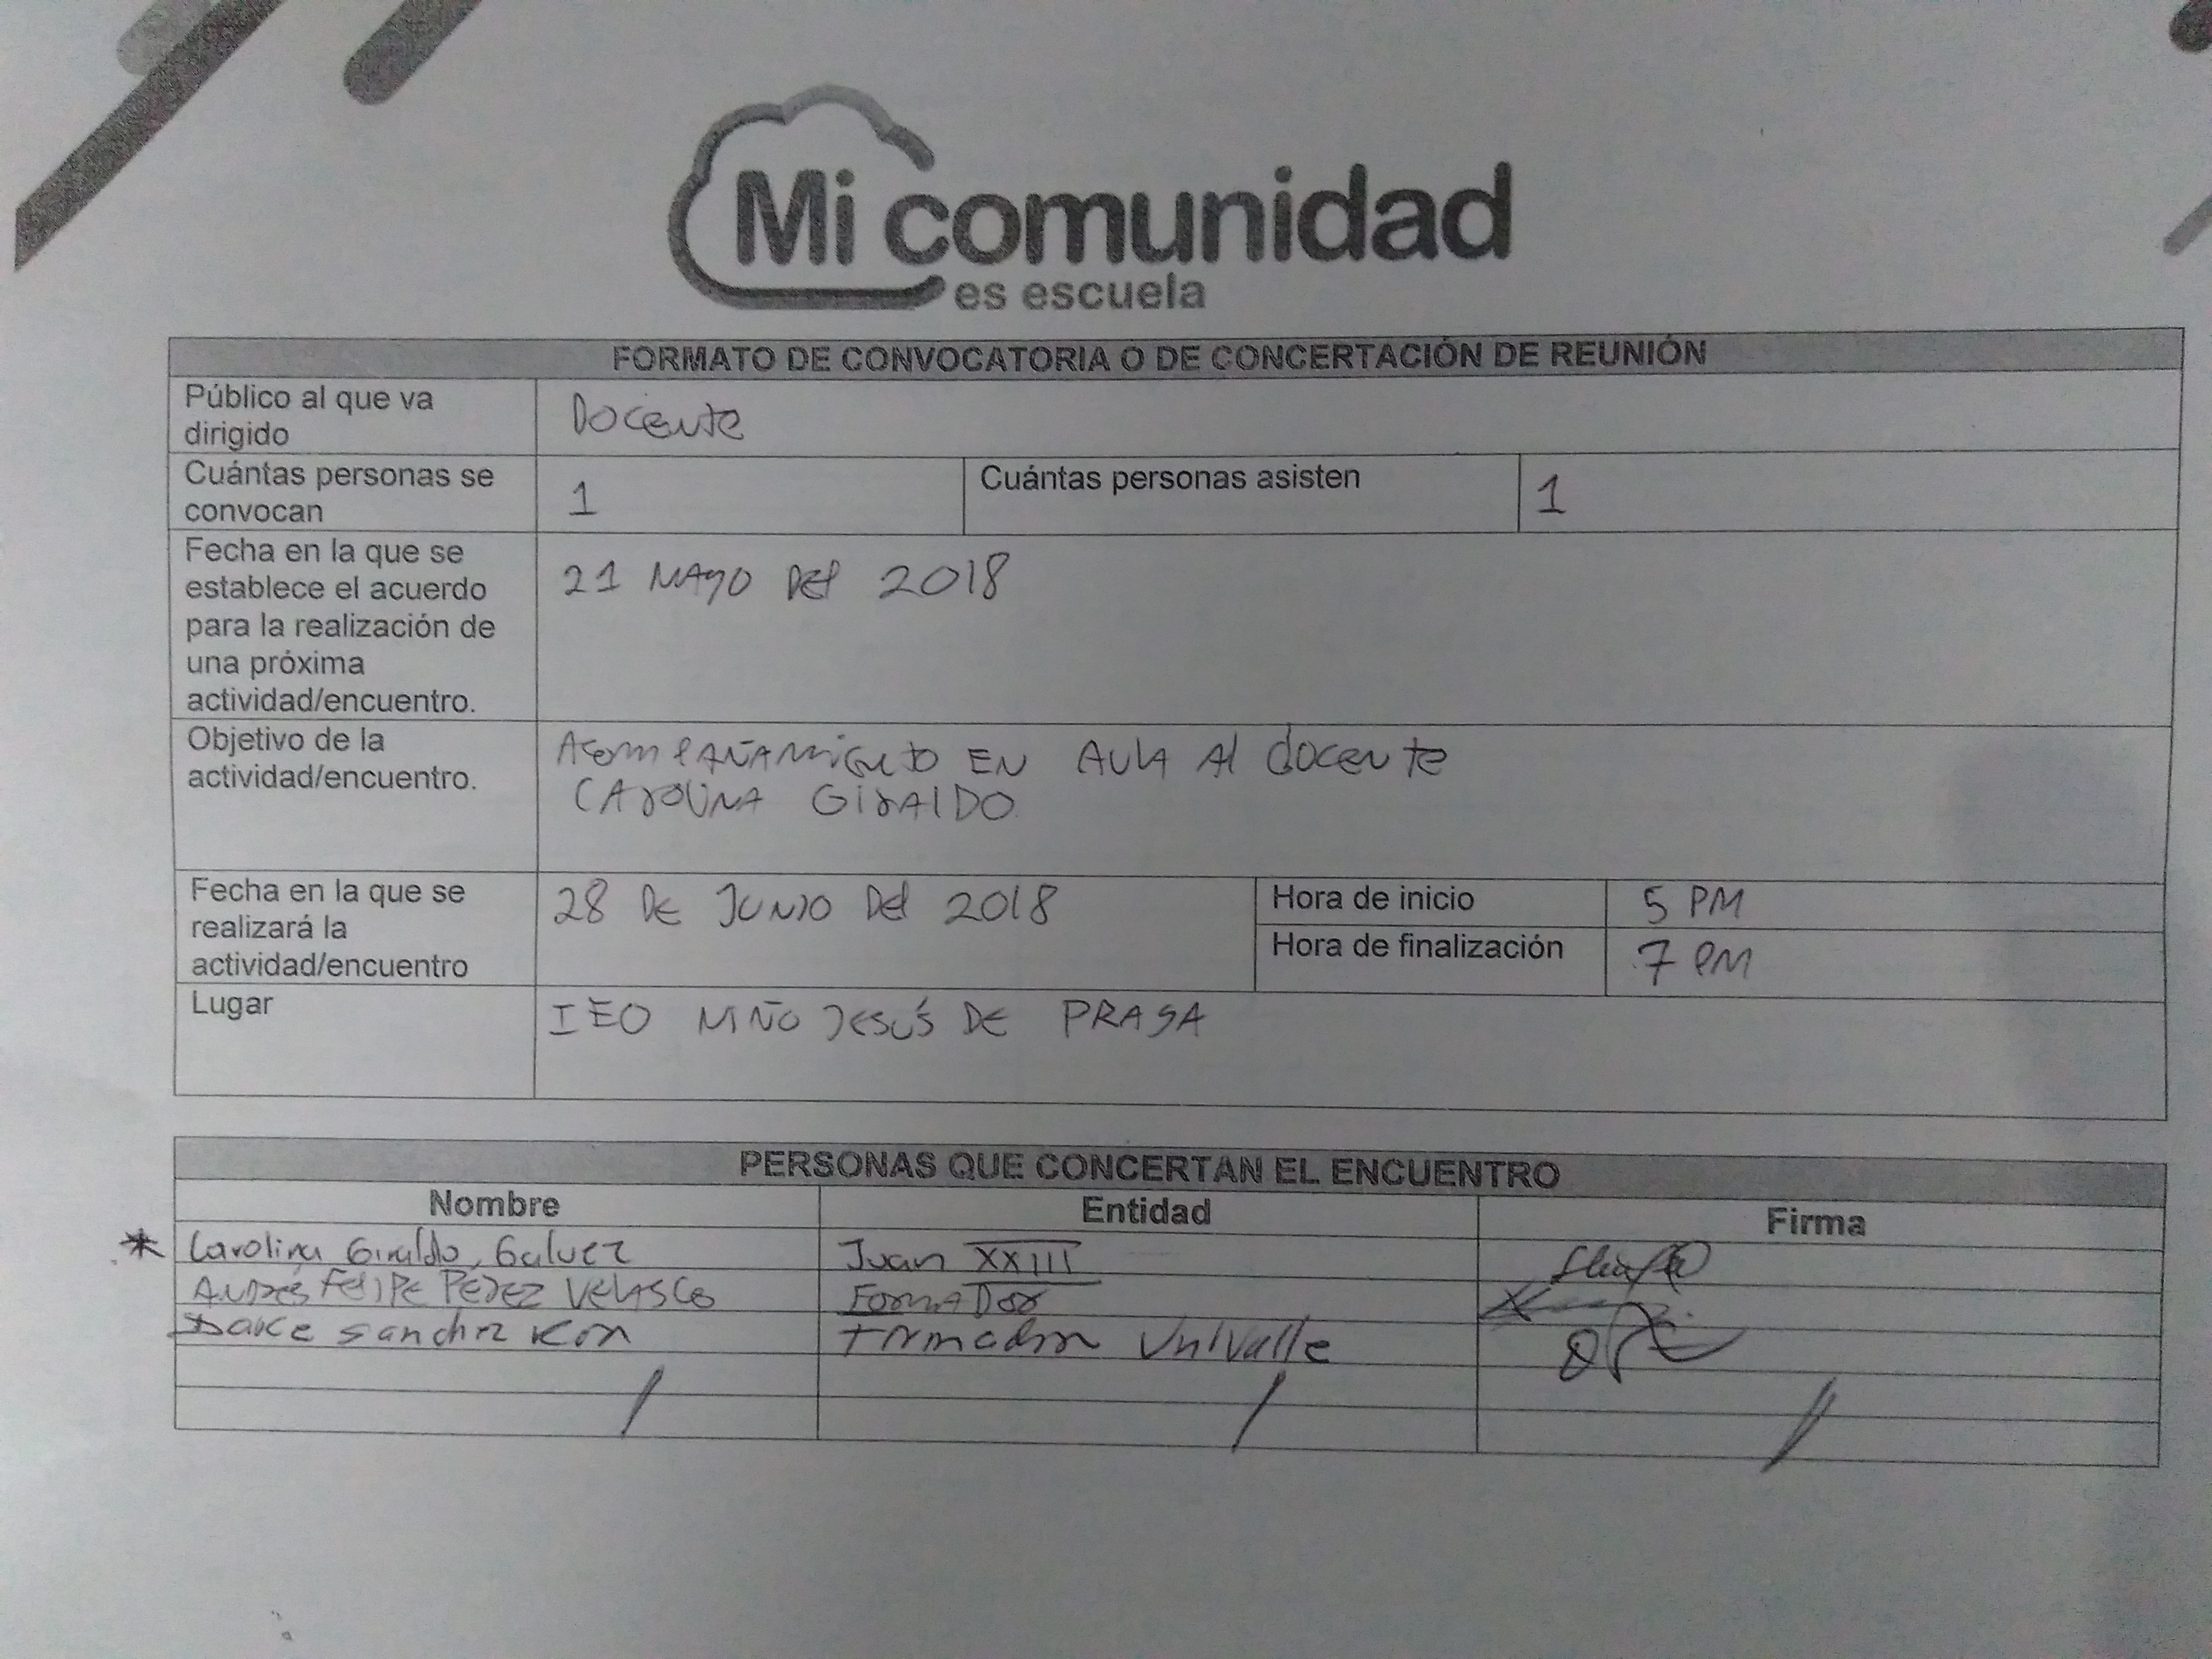 Mi comunidad
es escuela
FORMATO DE CONVOCATORIA O DE CONCERTACIÓN DE REUNIÓN
Público al que va
dirigido
Docente
Cuántas personas se
convocan
1
Cuántas personas asisten
1
Fecha en la que se
establece el acuerdo
para la realización de
una próxima
actividad/encuentro.
21 MAYO DEl 2018
Objetivo de la
actividad/encuentro.
AComPAÑAMiento EN AULA Al docente
CAROLINA GIRAlDO
Fecha en la que se
realizará la
actividad/encuentro
28 DE JUNIO DEl 2018
Hora de inicio
5 PM
Hora de finalización
7 PM
Lugar
IEO NIÑO JESÚS DE PRAGA
PERSONAS QUE CONCERTAN EL ENCUENTRO
Nombre Entidad Firma
* Carolina Giraldo Galvez Juan XXIII
ANDRÉS FElIPE PÉREZ VELASCO FORMADOR
sanchez formador Univalle